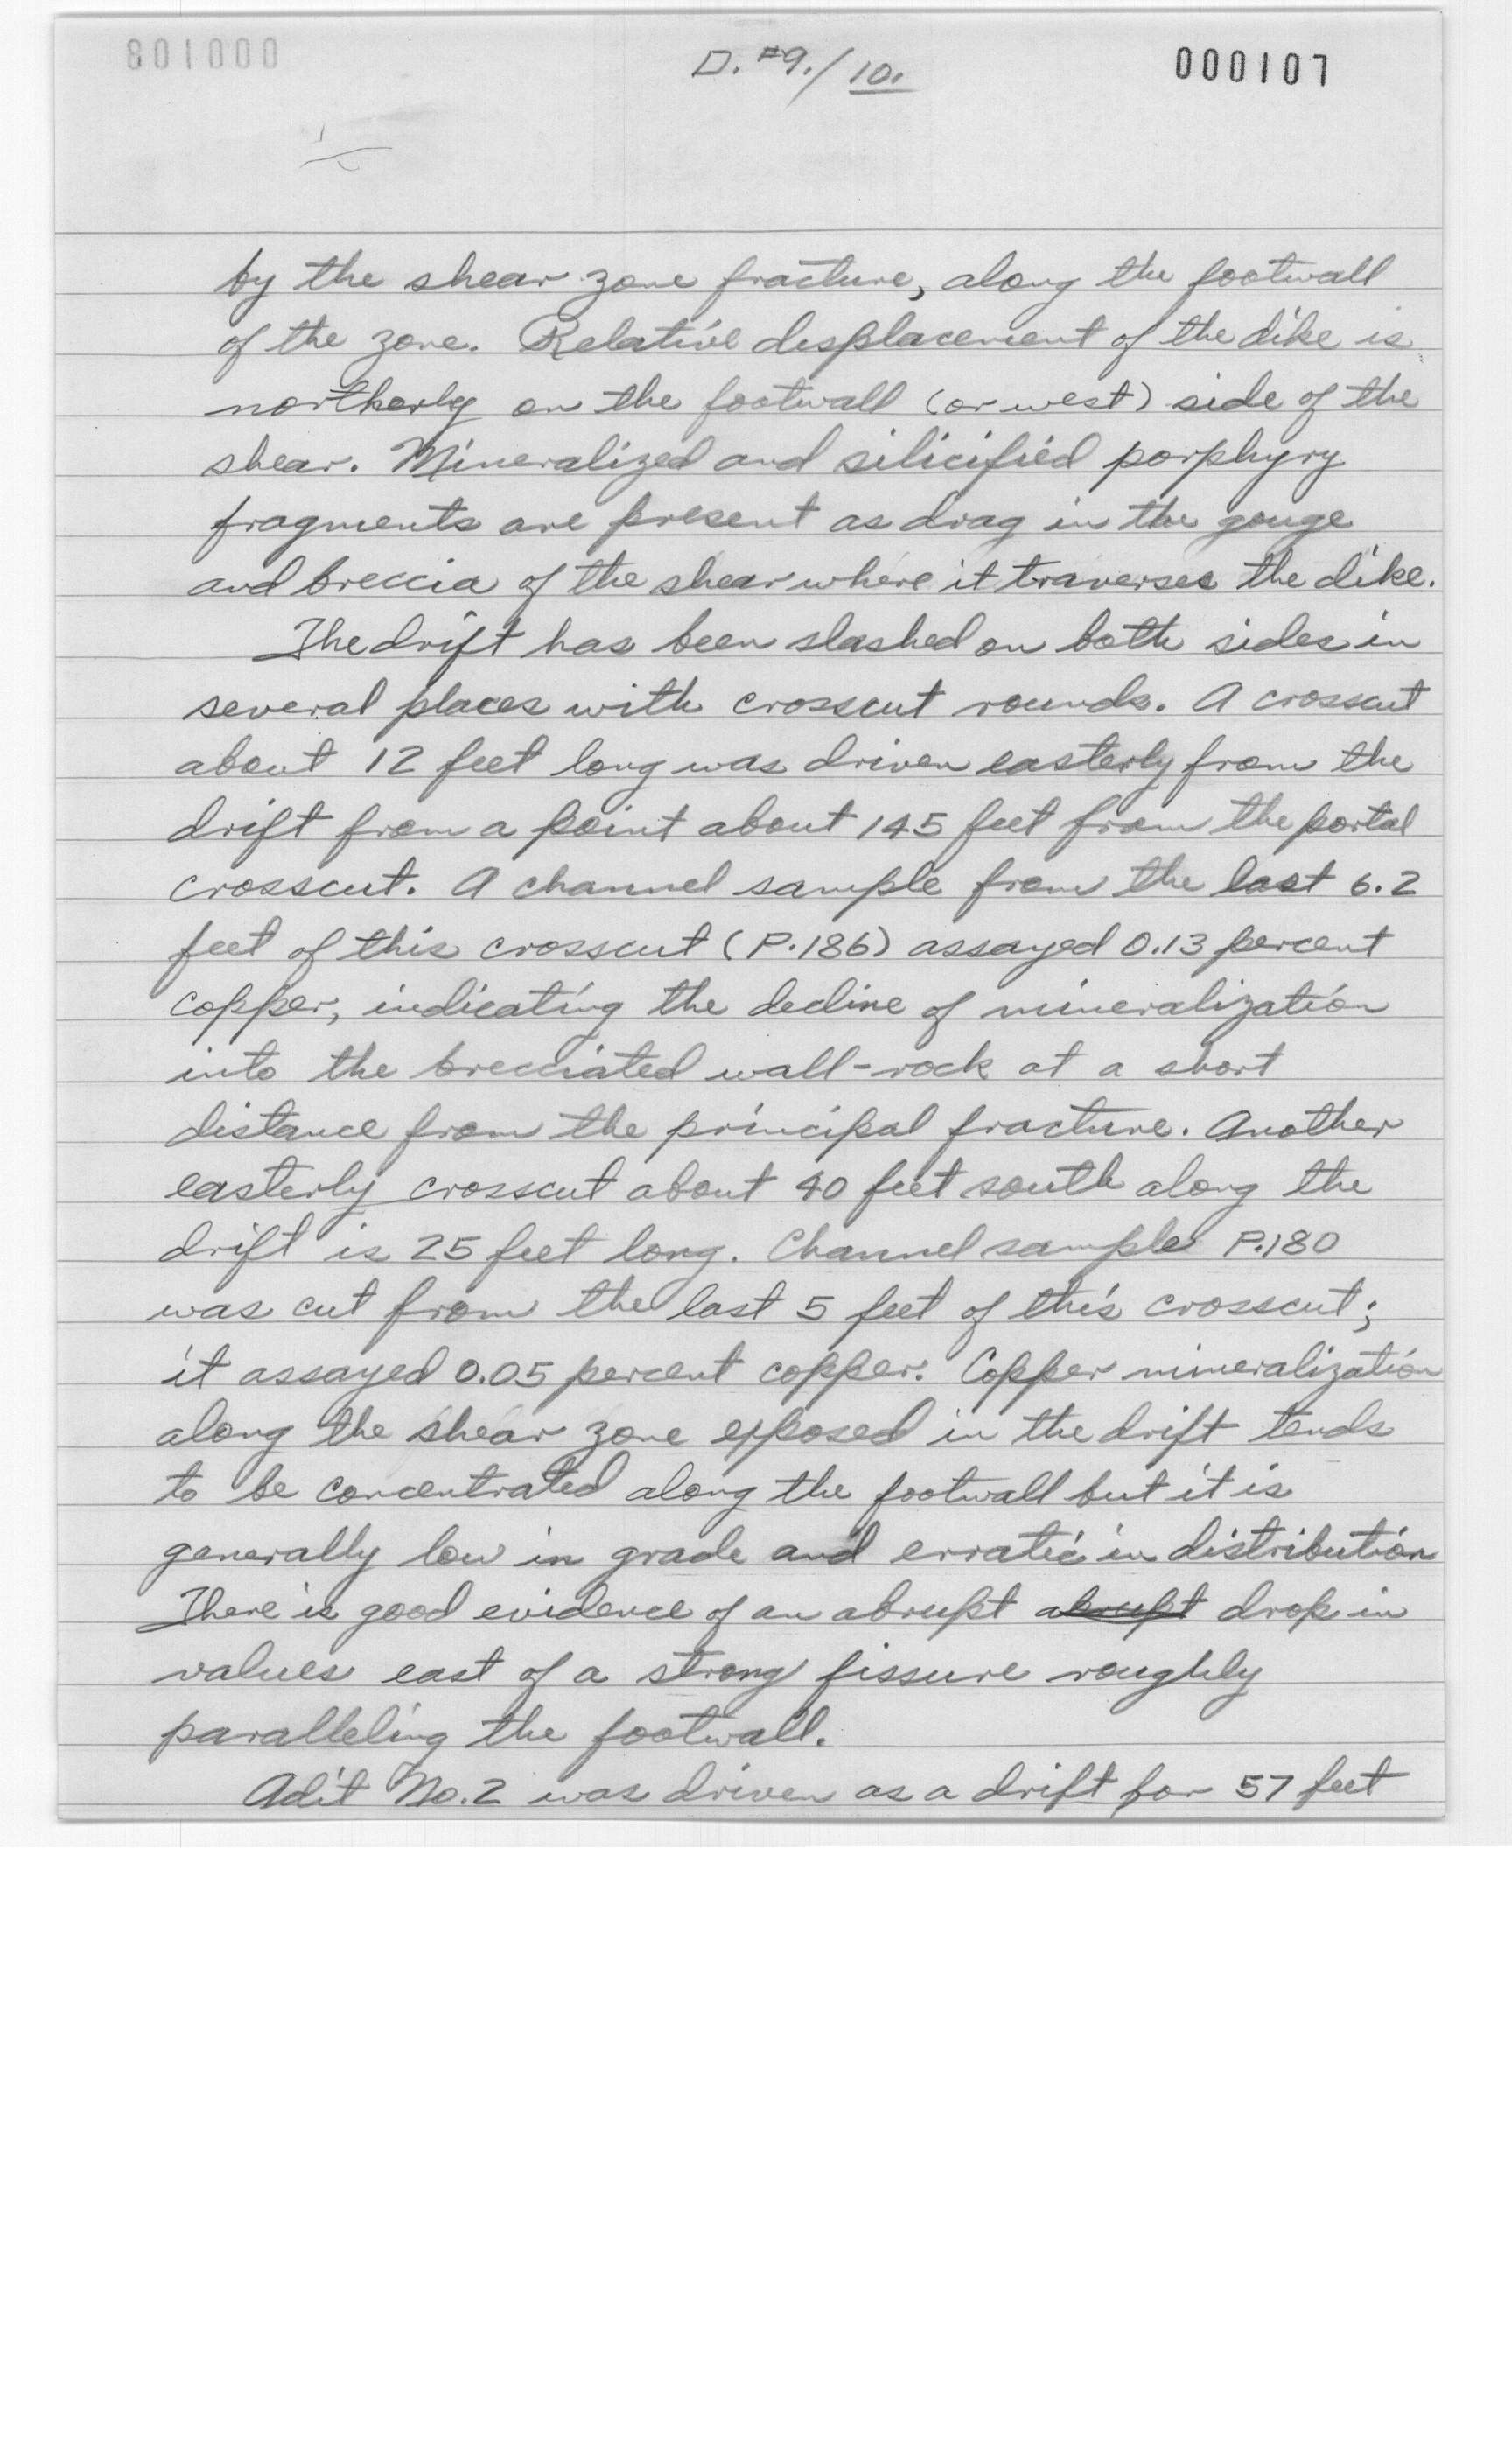 801000
D. #9./10.
000107
by the shear zone fracture, along the footwall
of the zone. Relative displacement of the dike is
northerly on the footwall (or west) side of the
shear. Mineralized and silicified porphyry
fragments are present as drag in the gouge
and breccia of the shear where it traverses the dike.
The drift has been slashed on both sides in
several places with crosscut rounds. A crosscut
about 12 feet long was driven easterly from the
drift from a point about 145 feet from the portal
crosscut. A channel sample from the last 6.2
feet of this crosscut (P.186) assayed 0.13 percent
copper, indicating the decline of mineralization
into the brecciated wall-rock at a short
distance from the principal fracture. Another
easterly crosscut about 40 feet south along the
drift is 25 feet long. Channel sample P.180
was cut from the last 5 feet of this crosscut;
it assayed 0.05 percent copper. Copper mineralization
along the shear zone exposed in the drift tends
to be concentrated along the footwall but it is
generally low in grade and erratic in distribution
There is good evidence of an abrupt abrupt drop in
values east of a strong fissure roughly
paralleling the footwall.
Adit No. 2 was driven as a drift for 57 feet